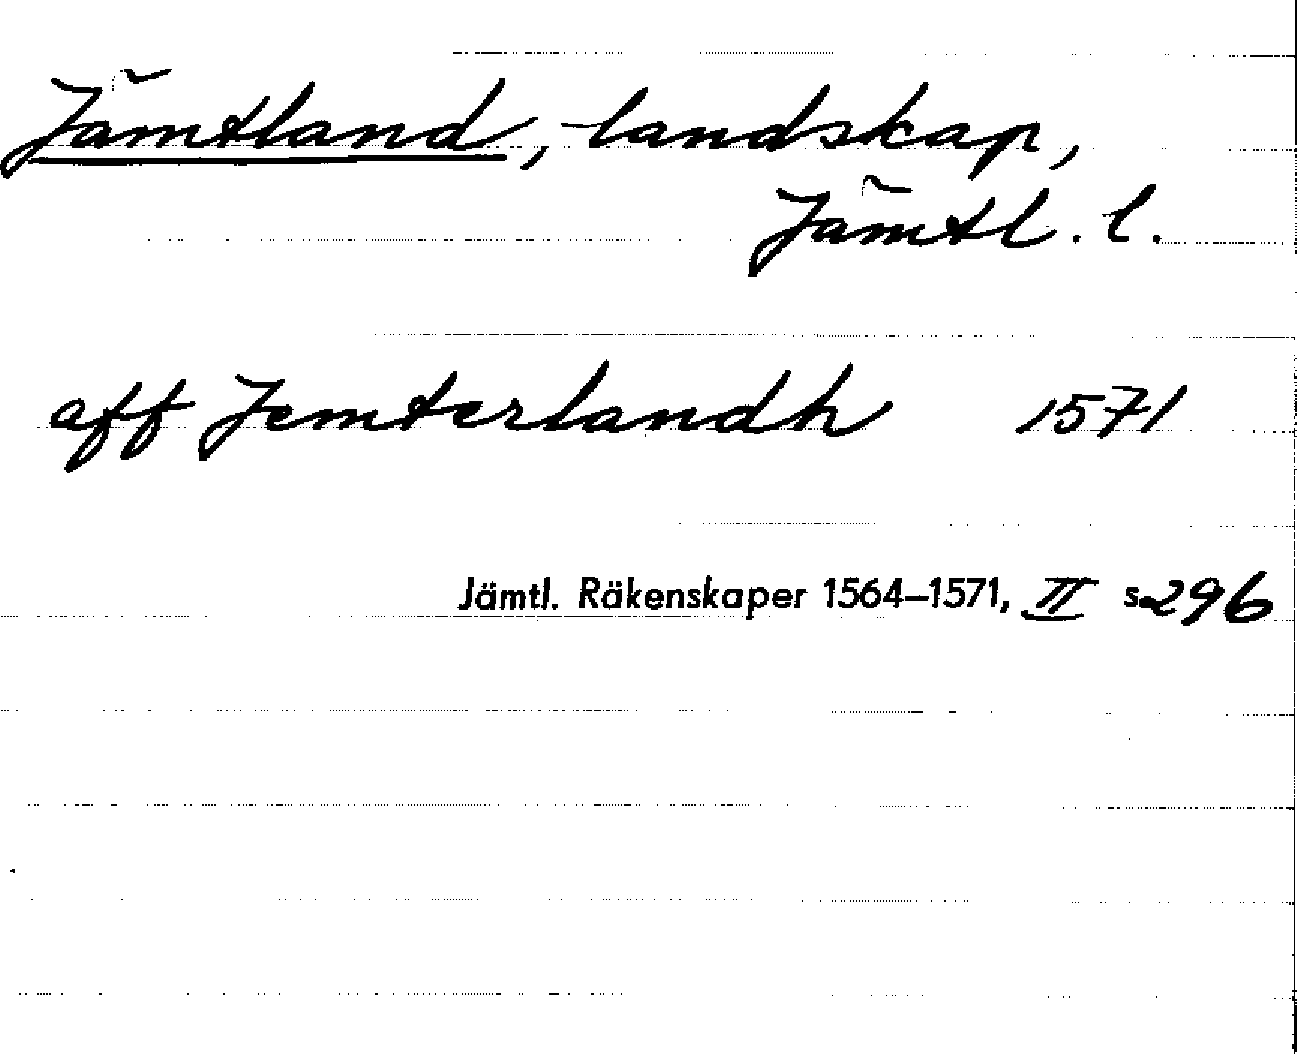 Jämtland, landskap,
Jämtl. l.
aff Jemterlandh 1571
Jämtl. Räkenskaper 1564–1571, II s. 296